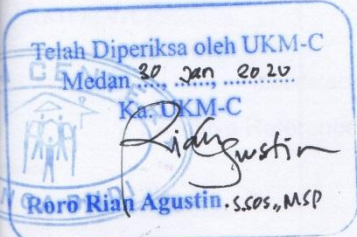 Telah Diperiksa oleh UKM-C
Medan 30 Jan 2020
Ka. UKM-C
Rian Agustin
Roro Rian Agustin.S.SOS.,MSP